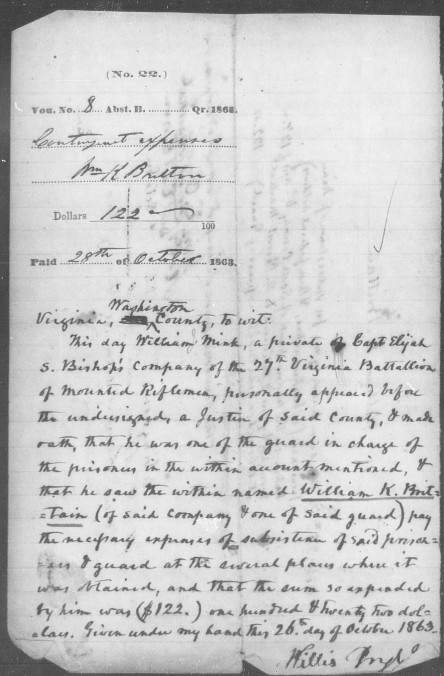 (No. 22.)
Vou. No. 8 Abst. B. Qr. 1863.
Contingent expenses
Wm K Britton
Dollars 122 100
Paid 28th of October 1863.
Washington
Virginia, County, to wit:
This day William Mink, a private of Capt Elijah
S. Bishop's Company of the 27th Virginia Battallion
of Mounted Riflemen, personally appeared before
the undersigned, a Justice of said County, & made
oath, that he was one of the guard in charge of
the prisoners in the within account mentioned, &
that he saw the within named William K. Brit-
-tain (of said Company & one of said guard) pay
the necessary expenses of subsistence of said prison-
-ers & guard at the several places where it
was obtained, and that the sum so expended
by him was ($122.) one hundred & twenty two dol-
-lars. Given under my hand this 26th day of October 1863.
Willis